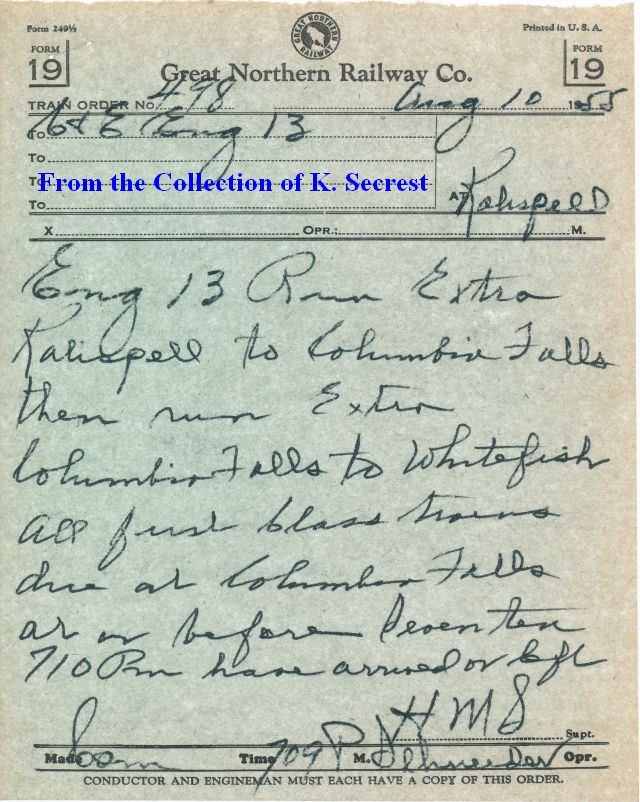 Form 249½
Printed in U. S. A.
GREAT NORTHERN RAILWAY
FORM 19
FORM 19
Great Northern Railway Co.
TRAIN ORDER No. 498 Aug 10 1955
To C&E Eng 13
To
To
From the Collection of K. Secrest
To
AT Kalispell
X OPR.: M.
Eng 13 Run Extra
Kalispell to Columbia Falls
then run Extra
Columbia Falls to Whitefish
All first Class trains
due at Columbia Falls
at or before Seven ten
710 Pm have arrived or left
H M S Supt.
Made Com Time 709 P M. Schneider Opr.
CONDUCTOR AND ENGINEMAN MUST EACH HAVE A COPY OF THIS ORDER.